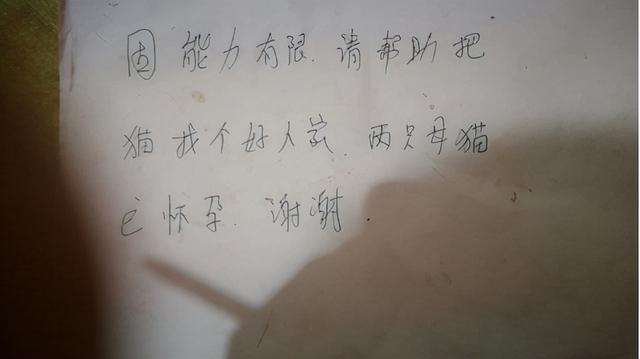 因能力有限.请帮助把
猫找个好人家.两只母猫
已怀孕.谢谢.